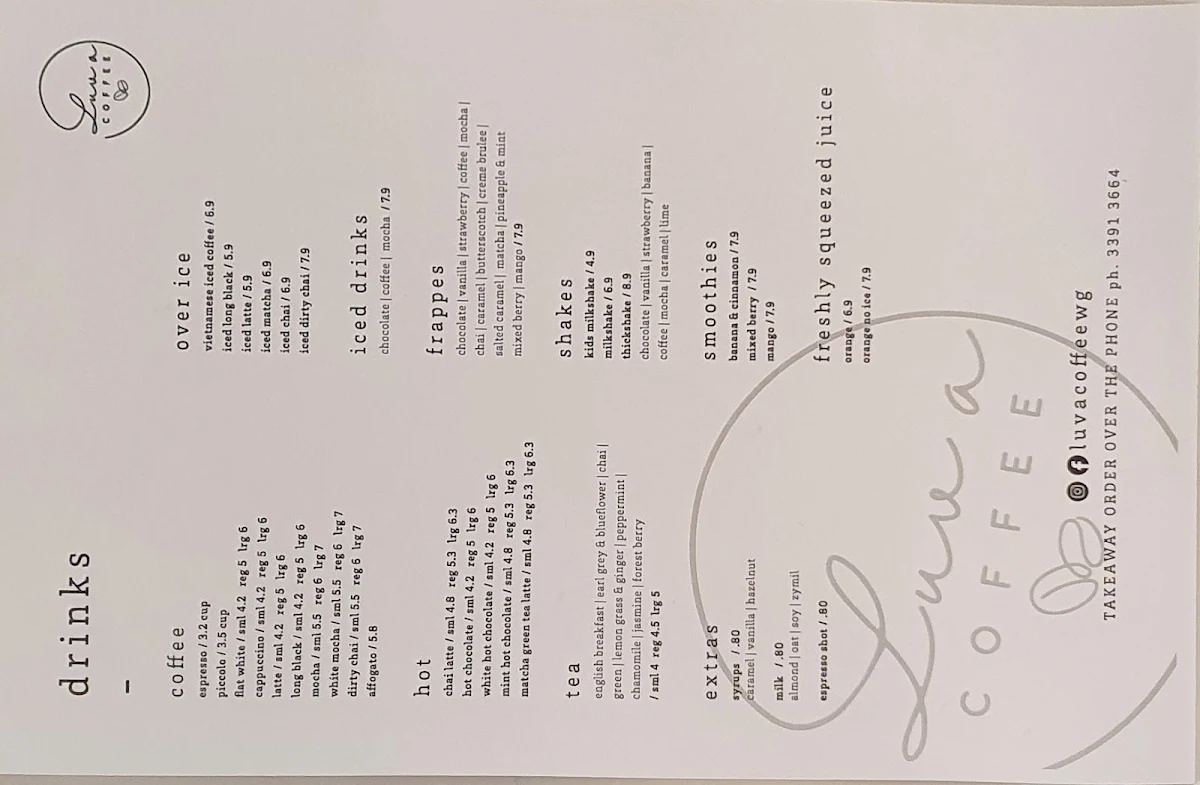 drinks
–
coffee
espresso / 3.2 cup
piccolo / 3.5 cup
flat white / sml 4.2 reg 5 lrg 6
cappuccino / sml 4.2 reg 5 lrg 6
latte / sml 4.2 reg 5 lrg 6
long black / sml 4.2 reg 5 lrg 6
mocha / sml 5.5 reg 6 lrg 7
white mocha / sml 5.5 reg 6 lrg 7
dirty chai / sml 5.5 reg 6 lrg 7
affogato / 5.8
hot
chai latte / sml 4.8 reg 5.3 lrg 6.3
hot chocolate / sml 4.2 reg 5 lrg 6
white hot chocolate / sml 4.2 reg 5 lrg 6
mint hot chocolate / sml 4.8 reg 5.3 lrg 6.3
matcha green tea latte / sml 4.8 reg 5.3 lrg 6.3
tea
english breakfast | earl grey & blueflower | chai |
green | lemon grass & ginger | peppermint |
chamomile | jasmine | forest berry
/ sml 4 reg 4.5 lrg 5
extras
syrups / .80
caramel | vanilla | hazelnut
milk / .80
almond | oat | soy | zymil
espresso shot / .80
Luva
COFFEE
over ice
vietnamese iced coffee / 6.9
iced long black / 5.9
iced latte / 5.9
iced matcha / 6.9
iced chai / 6.9
iced dirty chai / 7.9
iced drinks
chocolate | coffee | mocha / 7.9
frappes
chocolate | vanilla | strawberry | coffee | mocha |
chai | caramel | butterscotch | creme brulee |
salted caramel | matcha | pineapple & mint
mixed berry | mango / 7.9
shakes
kids milkshake / 4.9
milkshake / 6.9
thickshake / 8.9
chocolate | vanilla | strawberry | banana |
coffee | mocha | caramel | lime
smoothies
banana & cinnamon / 7.9
mixed berry / 7.9
mango / 7.9
freshly squeezed juice
orange / 6.9
orange no ice / 7.9
Luva
COFFEE
luvacoffeewg
TAKEAWAY ORDER OVER THE PHONE ph. 3391 3664